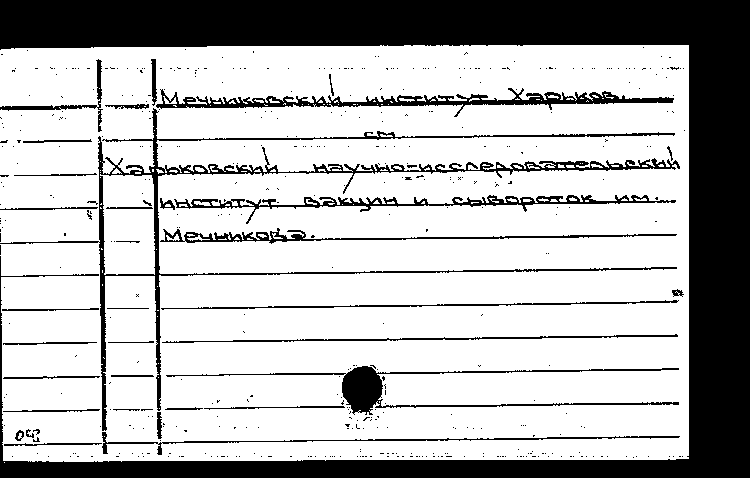 Мечниковский институт Харьков.
см
Харьковский научно-исследовательский
институт вакцин и сывороток им.
Мечникова.